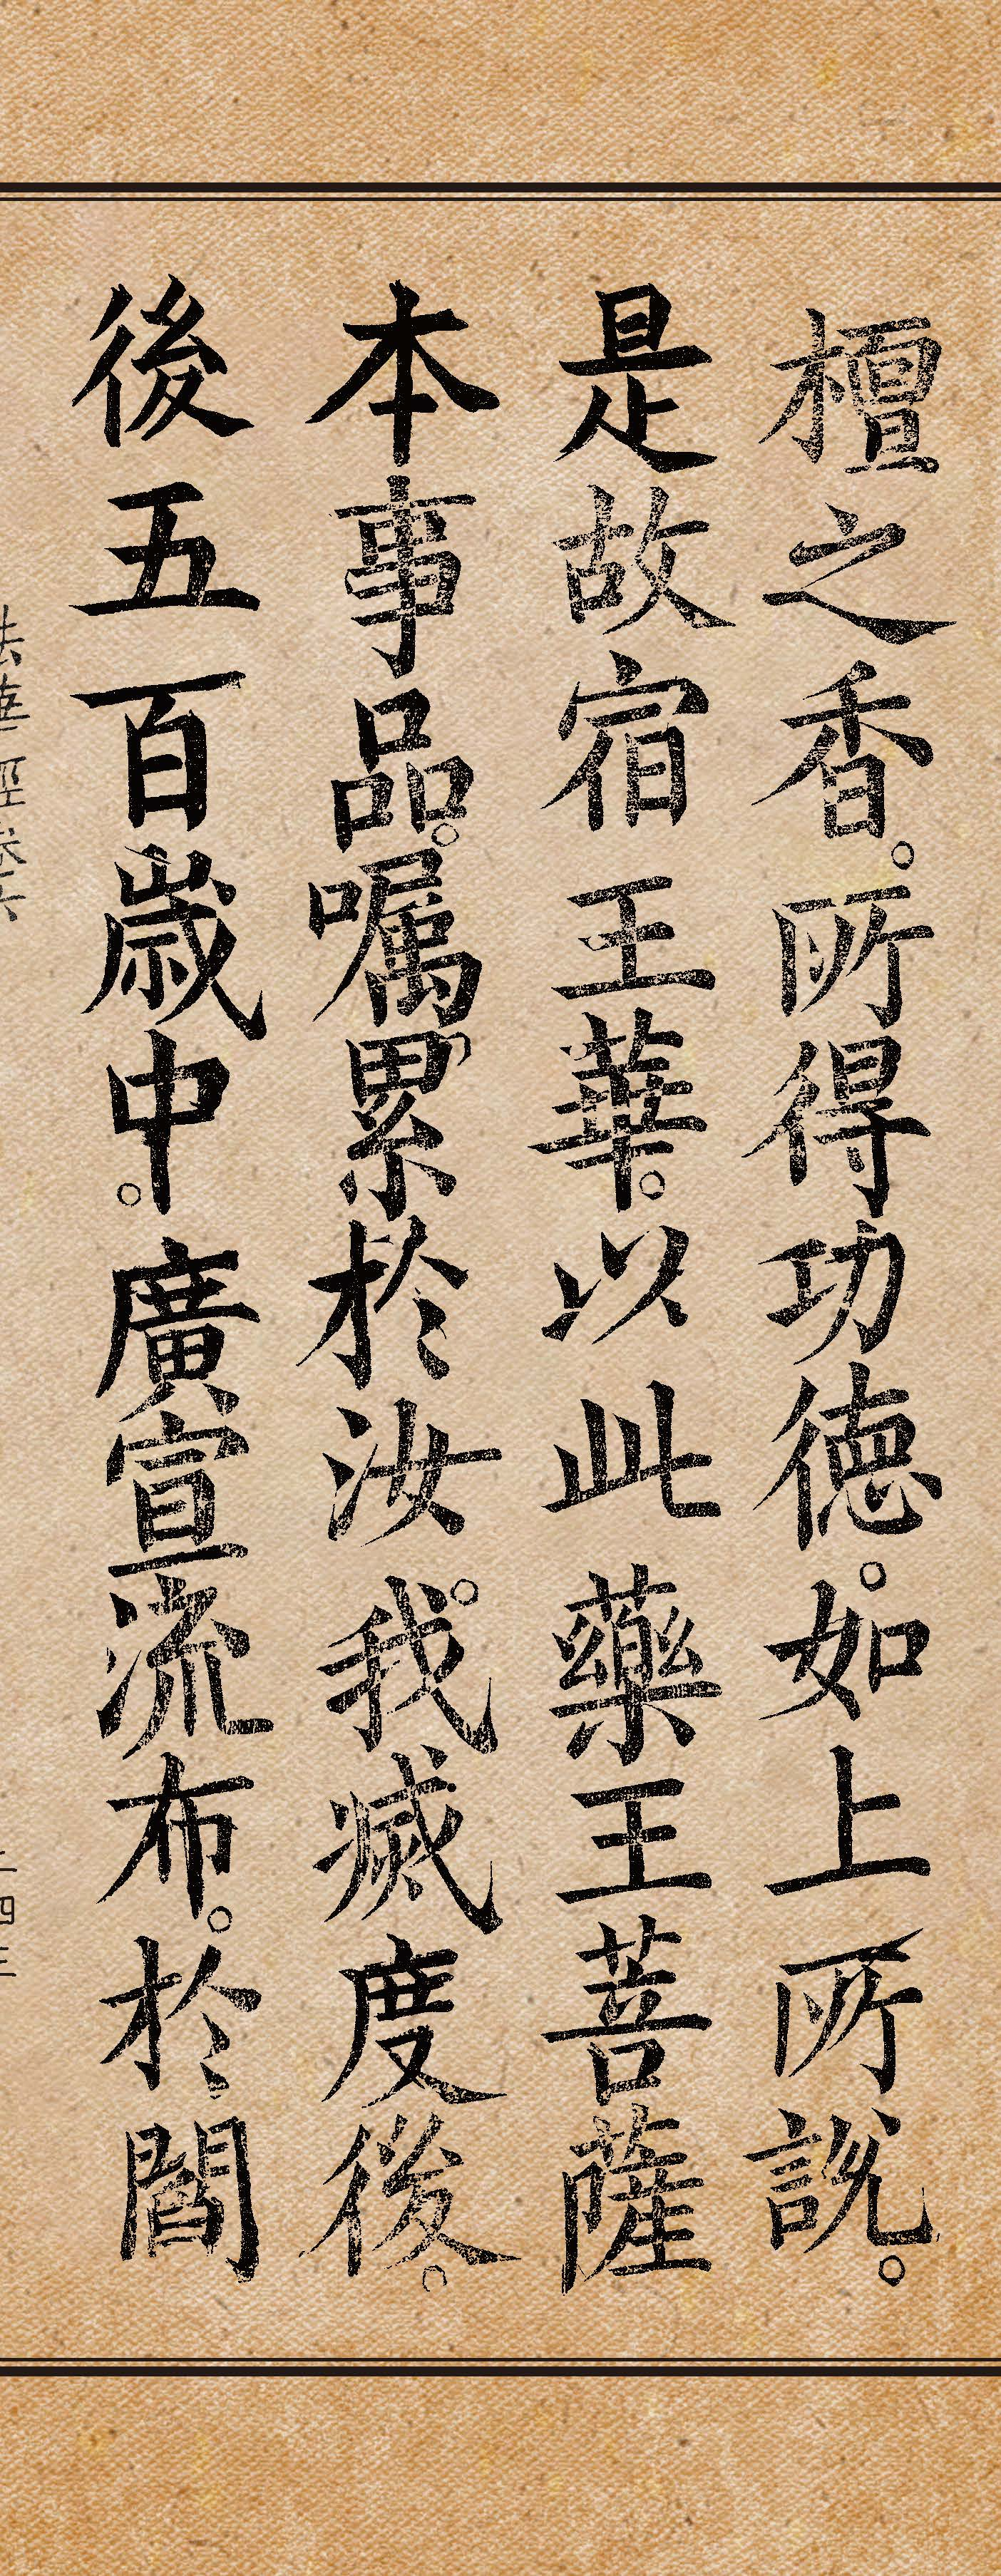 檀之香。所得功德。如上所說。
是故宿王華。以此藥王菩薩
本事品。囑累於汝。我滅度後。
後五百歲中。廣宣流布。於閻